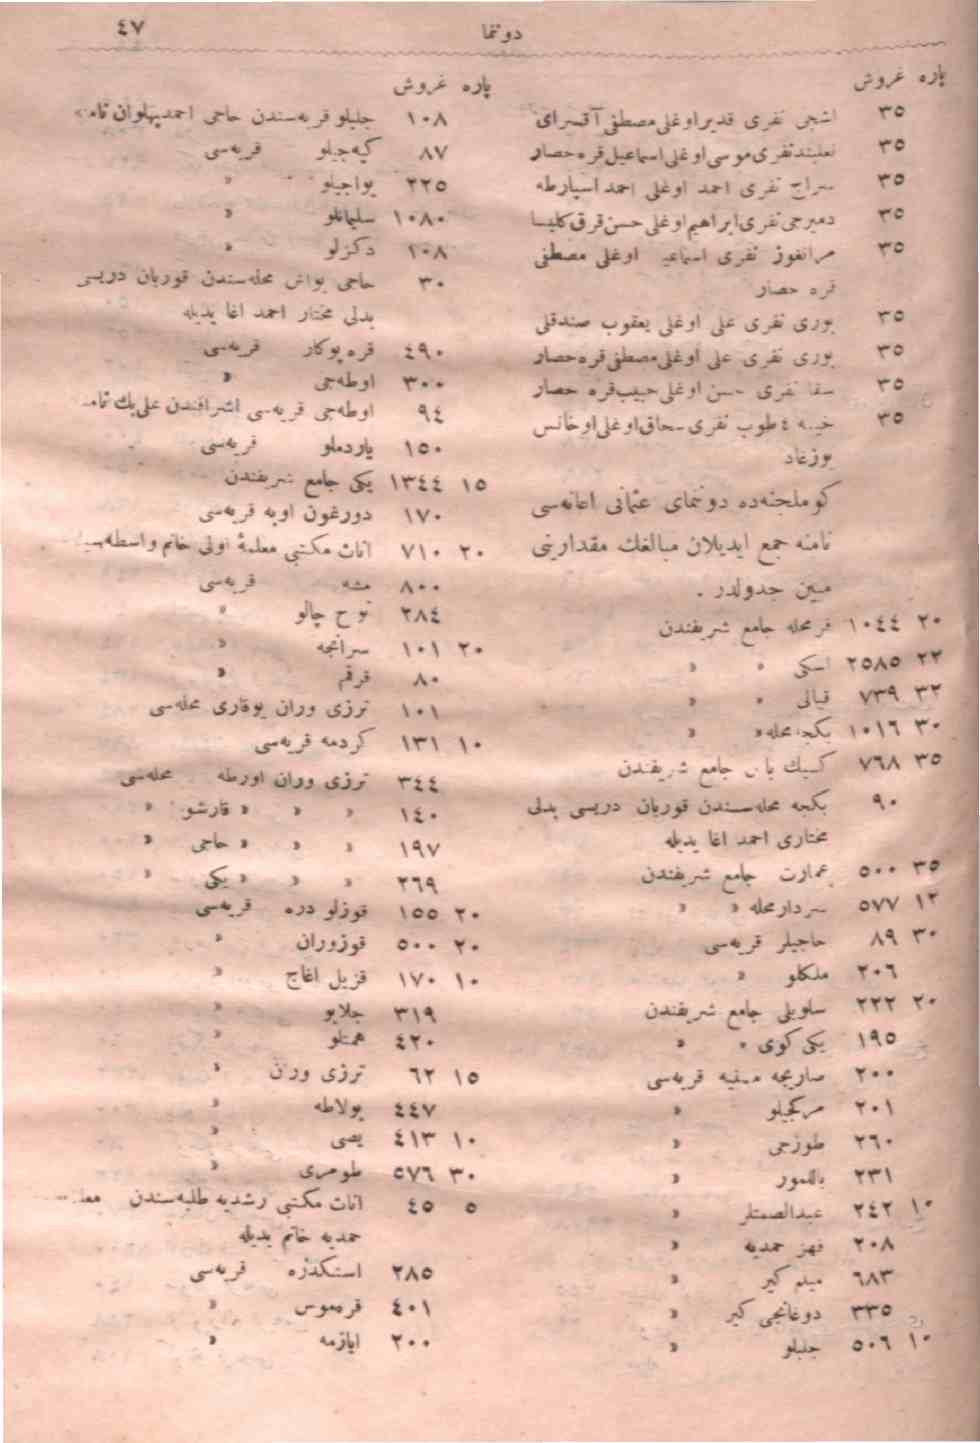 دوننما
٤٧
پاره غروش
٣٥ اشجی نفری قدیر اوغلی مصطفی آقسرای
٣٥ نعلبند نفری موسی اوغلی اسماعیل قره حصار
٣٥ سراج نفری احمد اوغلی احمد اسپارطه
٣٥ دمیرجی نفری ابراهیم اوغلی حسن قرق کلیسا
٣٥ مرانغوز نفری اسماعیل اوغلی مصطفی
قره حصار
٣٥ بوری نفری علی اوغلی یعقوب صندقلی
٣٥ بوری نفری علی اوغلی مصطفی قره حصار
٣٥ سقا نفری حسن اوغلی حبیب قره حصار
٣٥ ٤ طوب نفری سحاق اوغلی اوخانس
یوزغاد
کوملجنه‌ده دوننمای عثمانی اعانه‌سی
نامنه جمع ایدیلان مبالغك مقدارینی
مبین جدولدر .
٢٠ ١٠٤٤ قر محله جامع شریفندن
٢٢ ٢٥٨٥ اسکی » »
٣٢ ٧٣٩ قیالی » »
٣٠ ١٠١٦ یکجه محله » »
٣٥ ٧٦٨ کسیك باش جامع شریفندن
٩٠ یکجه محله‌سندن قوربان دریسی بدلی
مختاری احمد اغا یدیله
٣٥ ٥٠٠ عمارت جامع شریفندن
١٢ ٥٧٧ سردار محله » »
٣٠ ٨٩ حاجیلر قریه‌سی
٢٠٦ ملکلو »
٢٠ ٢٢٢ ساویلی جامع شریفندن
١٩٥ یکی کوی » »
٢٠٠ صاریجه قریه‌سی
٢٠١ مرکجیلو »
٢٦٠ طوزجی »
٢٣١ یالمور »
١٠ ٢٤٢ عبدالصمدلر »
٢٠٨ حمدیه »
٦٨٣ کیر »
٣٣٥ دوغانجی کیر »
١٠ ٥٠٦ جلبلو »
پاره غروش
١٠٨ جلیلو قریه‌سندن حاجی احمد پهلوان
٨٧ کیه‌جیلو قریه‌سی
٢٢٥ یواجیلو »
١٠٨٠ سلیمانلو »
١٠٨ دکزلو »
٣٠ حاجی یواش محله‌سندن قوربان دریسی
بدلی مختار احمد اغا یدیله
٤٩٠ قره پوکار قریه‌سی
٣٠٠ اوطه‌جی »
٩٤ اوطه‌جی قریه‌سی اشرافندن علی بك
١٥٠ یاردملو قریه‌سی
١٥ ١٣٤٤ یکی جامع شریفندن
١٧٠ دورغون اوبه قریه‌سی
٢٠ ٧١٠ اناث مکتبی معلمهٔ اولی خانم واسطه
٨٠٠ مشه قریه‌سی
٢٨٤ چالو »
٢٠ ١٠١ سرانجه »
٨٠ قرقم »
١٠١ ترزی وران یوقاری محله‌سی
١٠ ١٣١ کردمه قریه‌سی
٣٤٤ ترزی وران اورطه محله‌سی
١٤٠ » » » قارشو »
١٩٧ » » » حاجی »
٢٦٩ » » » یکی »
٢٠ ١٥٥ قوزلو دره قریه‌سی
٢٠ ٥٠٠ قوزوران »
١٠ ١٧٠ قزیل اغاج »
٣١٩ جلابو »
٤٢٠ همتلو »
١٥ ٦٢ ترزی وران »
٤٤٧ بولاطه »
١٠ ٤١٣ یصی »
٣٠ ٥٧٦ طومری »
٥ ٤٥ اناث مکتبی رشدیه طلبه‌سندن
حمدیه خانم یدیله
٢٨٥ استکدره قریه‌سی
٤٠١ قره‌موس »
٢٠٠ ایازمه »